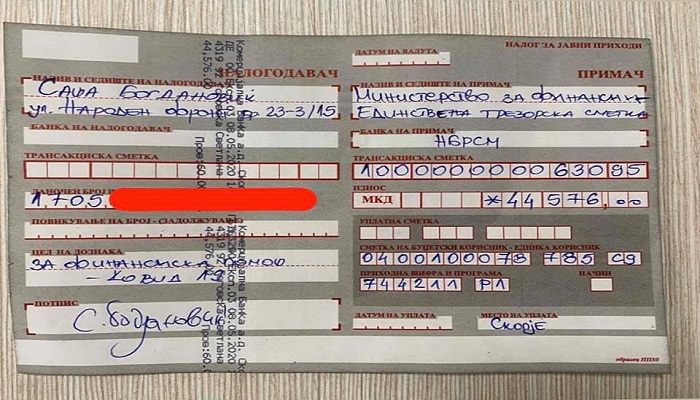 НАЛОГ ЗА ЈАВНИ ПРИХОДИ
НАЛОГОДАВАЧ
НАЗИВ И СЕДИШТЕ НА НАЛОГОДАВАЧ
Саша Богдановиќ
ул. Народен фронт бр 23-3/15
БАНКА НА НАЛОГОДАВАЧ
ТРАНСАКЦИСКА СМЕТКА
ДАНОЧЕН БРОЈ
1705
ПОВИКУВАЊЕ НА БРОЈ - (ЗАДОЛЖУВАЊЕ)
ЦЕЛ НА ДОЗНАКА
за финансиска помош
- Ковид 19
ПОТПИС
С. Богдановиќ
ДАТУМ НА ВАЛУТА
ПРИМАЧ
НАЗИВ И СЕДИШТЕ НА ПРИМАЧ
Министерство за финансии
Единствена трезорска сметка
БАНКА НА ПРИМАЧ
НБРСМ
ТРАНСАКЦИСКА СМЕТКА
100000000063095
ИЗНОС
МКД *44576,00
УПЛАТНА СМЕТКА
СМЕТКА НА БУЏЕТСКИ КОРИСНИК - ЕДИНКА КОРИСНИК
0400100078 785 69
ПРИХОДНА ШИФРА И ПРОГРАМА
НАЧИН
744211 Р1
ДАТУМ НА УПЛАТА
МЕСТО НА УПЛАТА
Скопје
образец ПП50
Комерцијална Банка а.д. Ско
08.05.2020
4319 92
Светлана
44,576.00
Пров:60.0